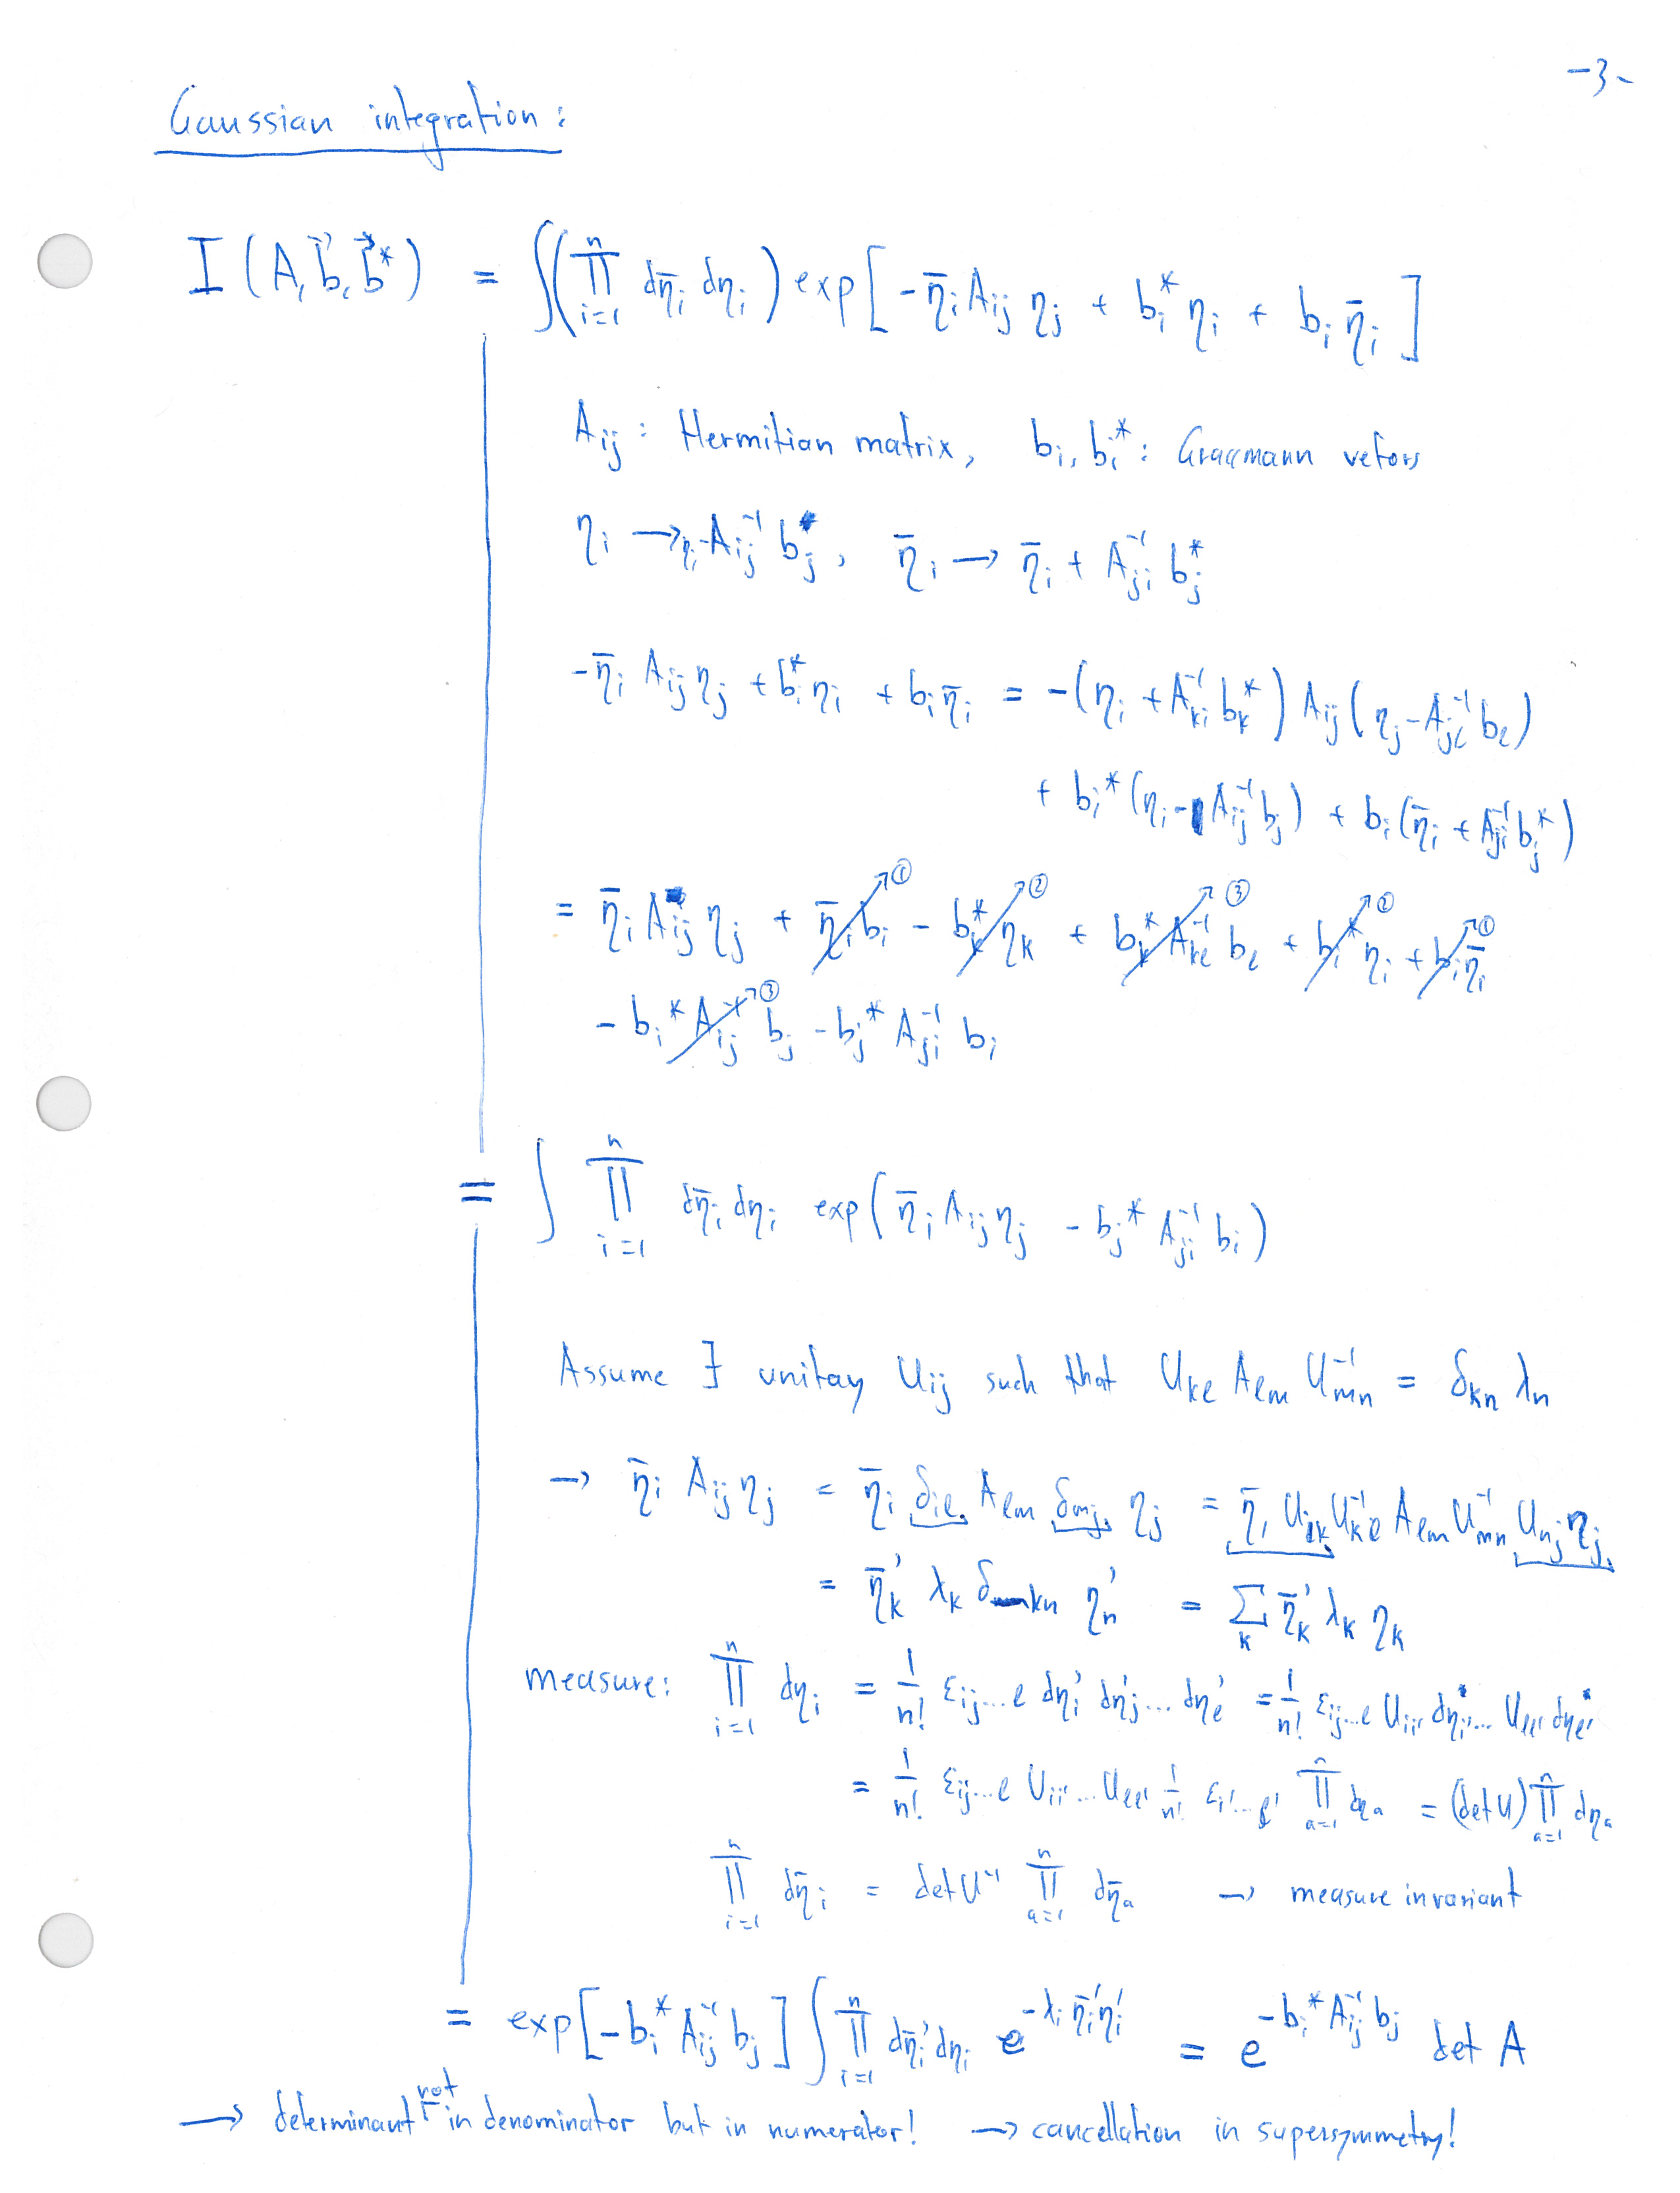 -3-
Gaussian integration:
I(A, b⃗, b⃗*) = ∫(∏_{i=1}^{n} dη̄_i dη_i) exp[-η̄_i A_ij η_j + b_i^* η_i + b_i η̄_i]
A_ij: Hermitian matrix, b_i, b_i^*: Grassmann vetors
η_i → η_i - A_ij^{-1} b_j, η̄_i → η̄_i + A_ji^{-1} b_j^*
-η̄_i A_ij η_j + b_i^* η_i + b_i η̄_i = -(η_i + A_ki^{-1} b_k^*) A_ij (η_j - A_jl^{-1} b_l)
+ b_i^* (η_i - A_ij^{-1} b_j) + b_i (η̄_i + A_ji^{-1} b_j^*)
= η̄_i A_ij η_j + η̄_i b_i ① - b_k^* η_k ② + b_k^* A_kl^{-1} b_l ③ + b_i^* η_i ② + b_i η̄_i ①
- b_i^* A_ij^{-1} b_j ③ - b_j^* A_ji^{-1} b_i
= ∫ ∏_{i=1}^{n} dη̄_i dη_i exp(η̄_i A_ij η_j - b_j^* A_ji^{-1} b_i)
Assume ∃ unitay U_ij such that U_kl A_lm U_mn^{-1} = δ_kn λ_n
→ η̄_i A_ij η_j = η̄_i δ_il A_lm δ_mj η_j = η̄_i U_ik U_kl^{-1} A_lm U_mn^{-1} U_nj η_j
= η̄_k' λ_k δ_kn η_n' = Σ_k η̄_k' λ_k η_k
measure: ∏_{i=1}^{n} dη_i = 1/n! ε_ij...l dη_i' dη_j' ... dη_l' = 1/n! ε_ij...l U_ii' dη_i' ... U_ll' dη_l'
= 1/n! ε_ij...l U_ii' ... U_ll' 1/n! ε_i'...l' ∏_{a=1}^{n} dη_a = (det U) ∏_{a=1}^{n} dη_a
∏_{i=1}^{n} dη̄_i = det U^{-1} ∏_{a=1}^{n} dη̄_a → measure invariant
= exp[-b_i^* A_ij^{-1} b_j] ∫ ∏_{i=1}^{n} dη̄_i' dη_i e^{-λ_i η̄_i' η_i'} = e^{-b_i^* A_ij^{-1} b_j} det A
→ determinant not in denominator but in numerator! → cancellation in supersymmetry!